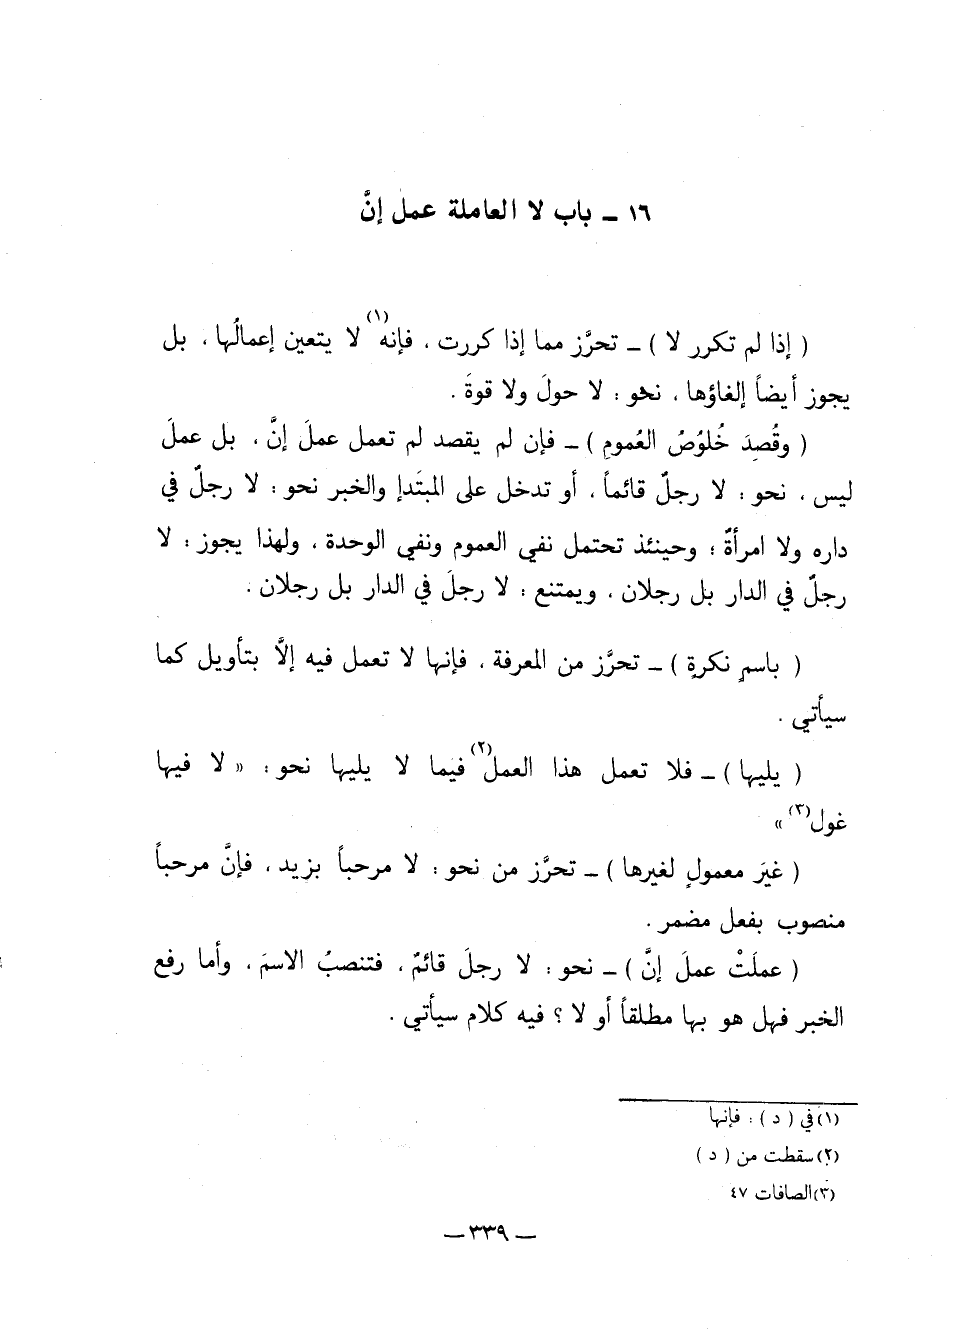 ١٦ ـ باب لا العاملة عمل إنَّ
( إذا لم تكرر لا ) ـ تحرَّز مما إذا كررت ، فإنه(١) لا يتعين إعمالُها ، بل
يجوز أيضاً إلغاؤها ، نحو : لا حولَ ولا قوةَ .
( وقُصِدَ خُلوُصُ العُمومِ ) ـ فإن لم يقصد لم تعمل عملَ إنَّ ، بل عملَ
ليس ، نحو : لا رجلٌ قائماً ، أو تدخل على المبتدإ والخبر نحو : لا رجلٌ في
داره ولا امرأةٌ ؛ وحينئذ تحتمل نفي العموم ونفي الوحدة ، ولهذا يجوز : لا
رجلٌ في الدار بل رجلان ، ويمتنع : لا رجلَ في الدار بل رجلان .
( باسمٍ نكرةٍ ) ـ تحرَّز من المعرفة ، فإنها لا تعمل فيه إلاَّ بتأويل كما
سيأتي .
( يليها ) ـ فلا تعمل هذا العمل(٢) فيما لا يليها نحو : « لا فيها
غول(٣) »
( غيرَ معمولٍ لغيرها ) ـ تحرَّز من نحو : لا مرحباً بزيد ، فإنَّ مرحباً
منصوب بفعل مضمر .
( عملَتْ عملَ إنَّ ) ـ نحو : لا رجلَ قائمٌ ، فتنصبُ الاسمَ ، وأما رفع
الخبر فهل هو بها مطلقاً أو لا ؟ فيه كلام سيأتي .
(١) في ( د ) : فإنها
(٢) سقطت من ( د )
(٣) الصافات ٤٧
ـ ٣٣٩ ـ